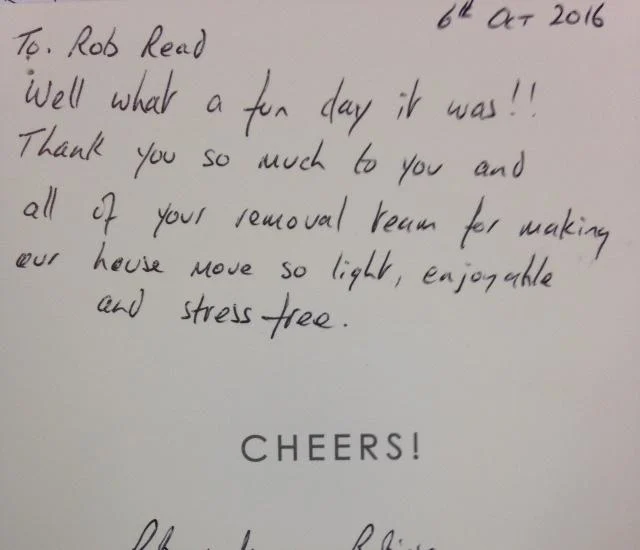 6th Oct 2016
To. Rob Read
Well what a fun day it was!!
Thank you so much to you and
all of your removal team for making
our house move so light, enjoyable
and stress free.
CHEERS!